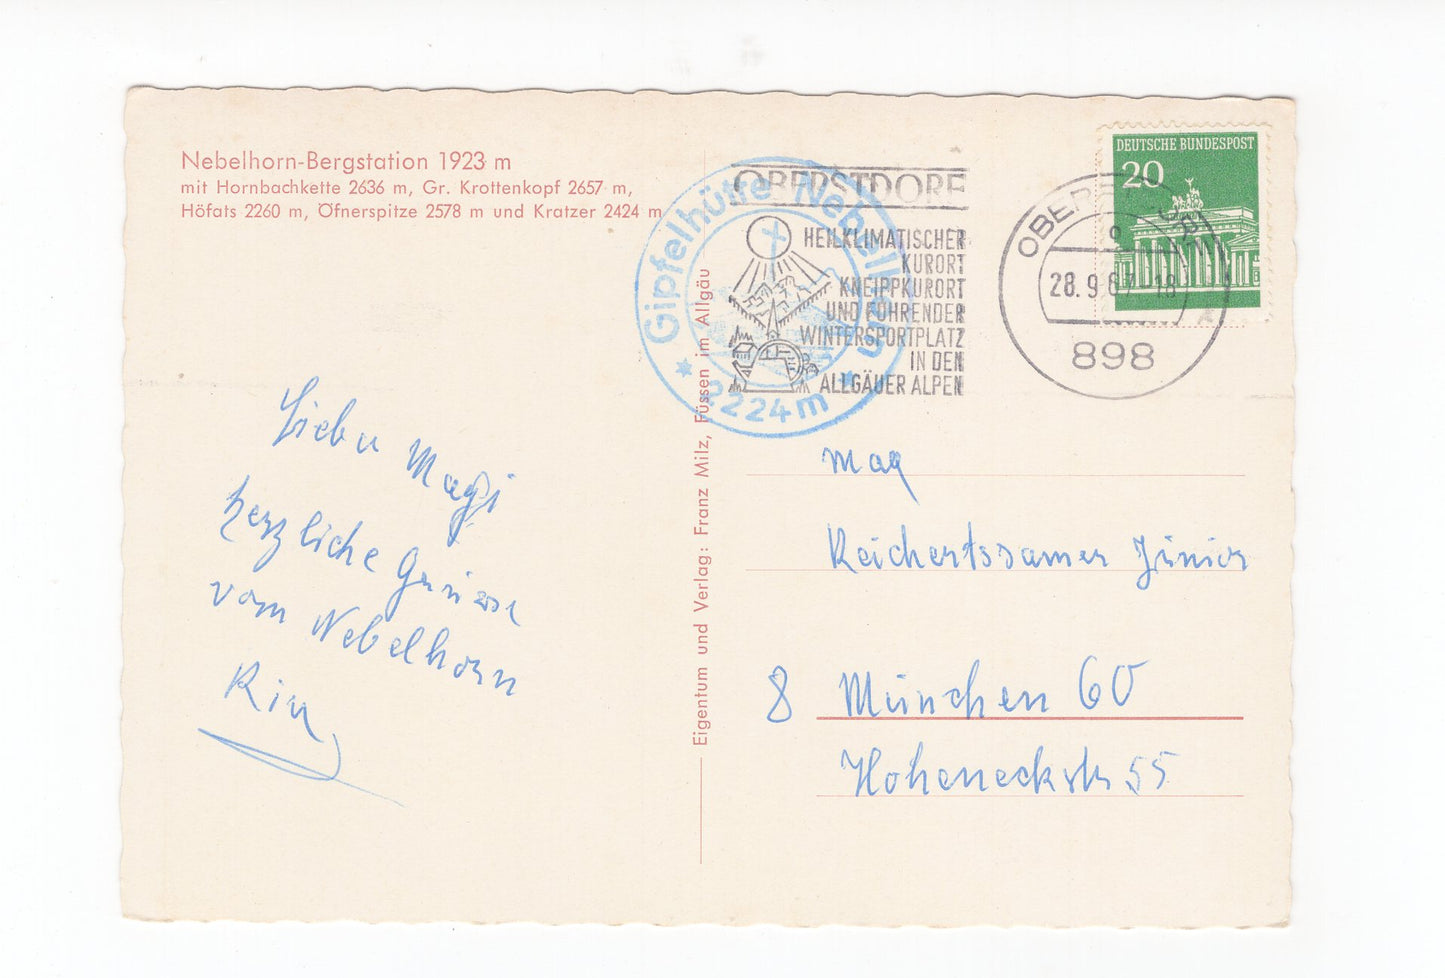 Nebelhorn-Bergstation 1923 m
mit Hornbachkette 2636 m, Gr. Krottenkopf 2657 m,
Höfats 2260 m, Öfnerspitze 2578 m und Kratzer 2424 m
Gipfelhütte Nebelhorn
2224 m
OBERSTDORF
HEILKLIMATISCHER
KURORT
KNEIPPKURORT
UND FÜHRENDER
WINTERSPORTPLATZ
IN DEN
ALLGÄUER ALPEN
OBERSTDORF
28.9.67-18
898
DEUTSCHE BUNDESPOST
20
Eigentum und Verlag: Franz Milz, Füssen im Allgäu
herzliche Grüsse
vom Nebelhorn
Mag
Junior
8 München 60
Hoheneckstr 55